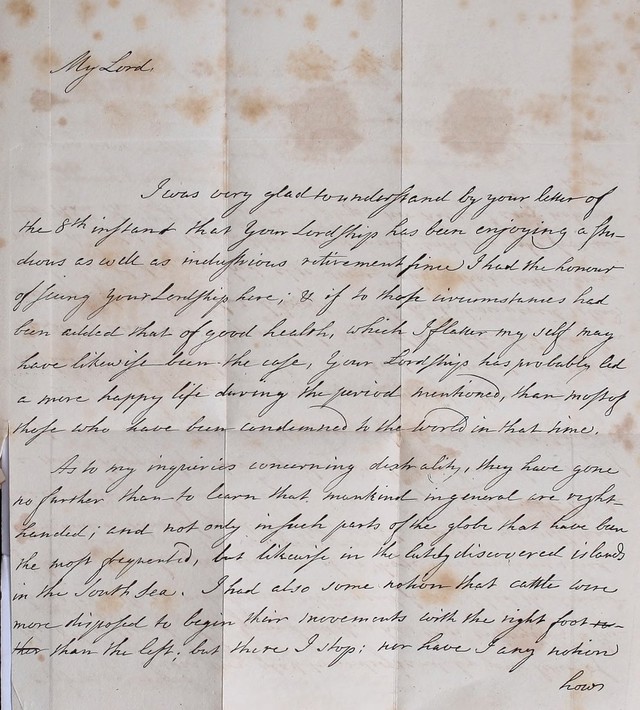 My Lord,
I was very glad to understand by your letter of
the 8th instant that Your Lordship has been enjoying a stu-
dious as well as industrious retirement since I had the honour
of seeing Your Lordship here; & if to those circumstances had
been added that of good health, which I flatter my self may
have likewise been the case, Your Lordship has probably led
a more happy life during the period mentioned, than most of
those who have been condemned to the world in that time.
As to my inquiries concerning dextrality, they have gone
no further than to learn that mankind in general are right-
handed; and not only in such parts of the globe that have been
the most frequented, but likewise in the lately discovered islands
in the South Sea. I had also some notion that cattle were
more disposed to begin their movements with the right foot ra-
ther than the left; but there I stop: nor have I any notion
how